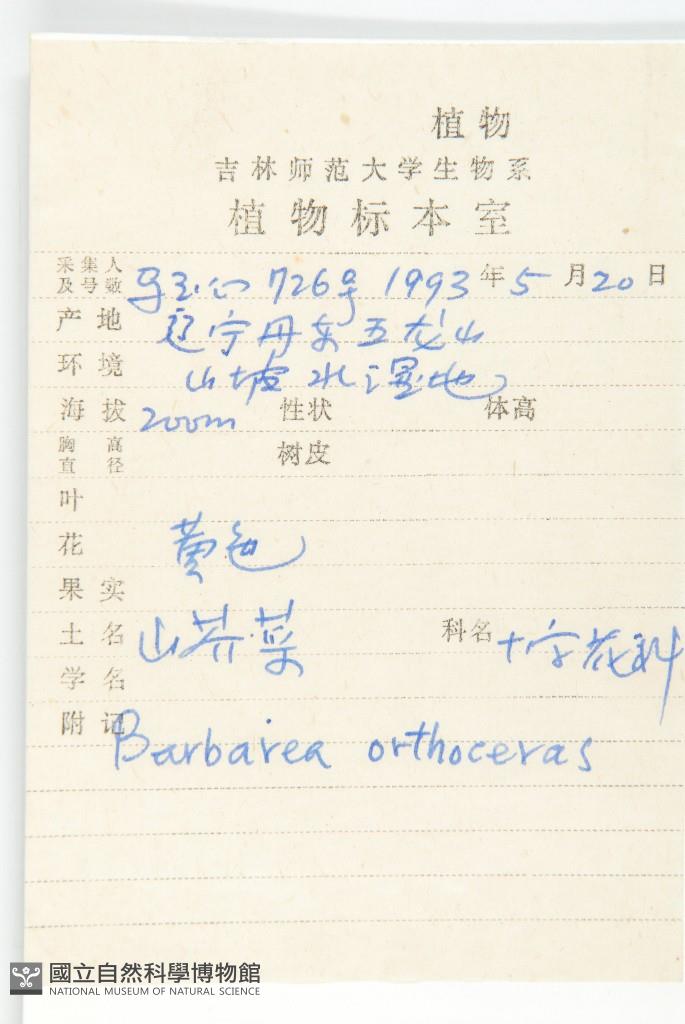 植物
吉林师范大学生物系
植物标本室
采集人及号数 726号 1993年5月20日
产地 辽宁丹东五龙山
环境 山坡水湿地
海拔 200m 性状 体高
胸高直径 树皮
叶
花 黄色
果实
土名 山芥菜 科名 十字花科
学名
附记 Barbarea orthoceras
國立自然科學博物館
NATIONAL MUSEUM OF NATURAL SCIENCE